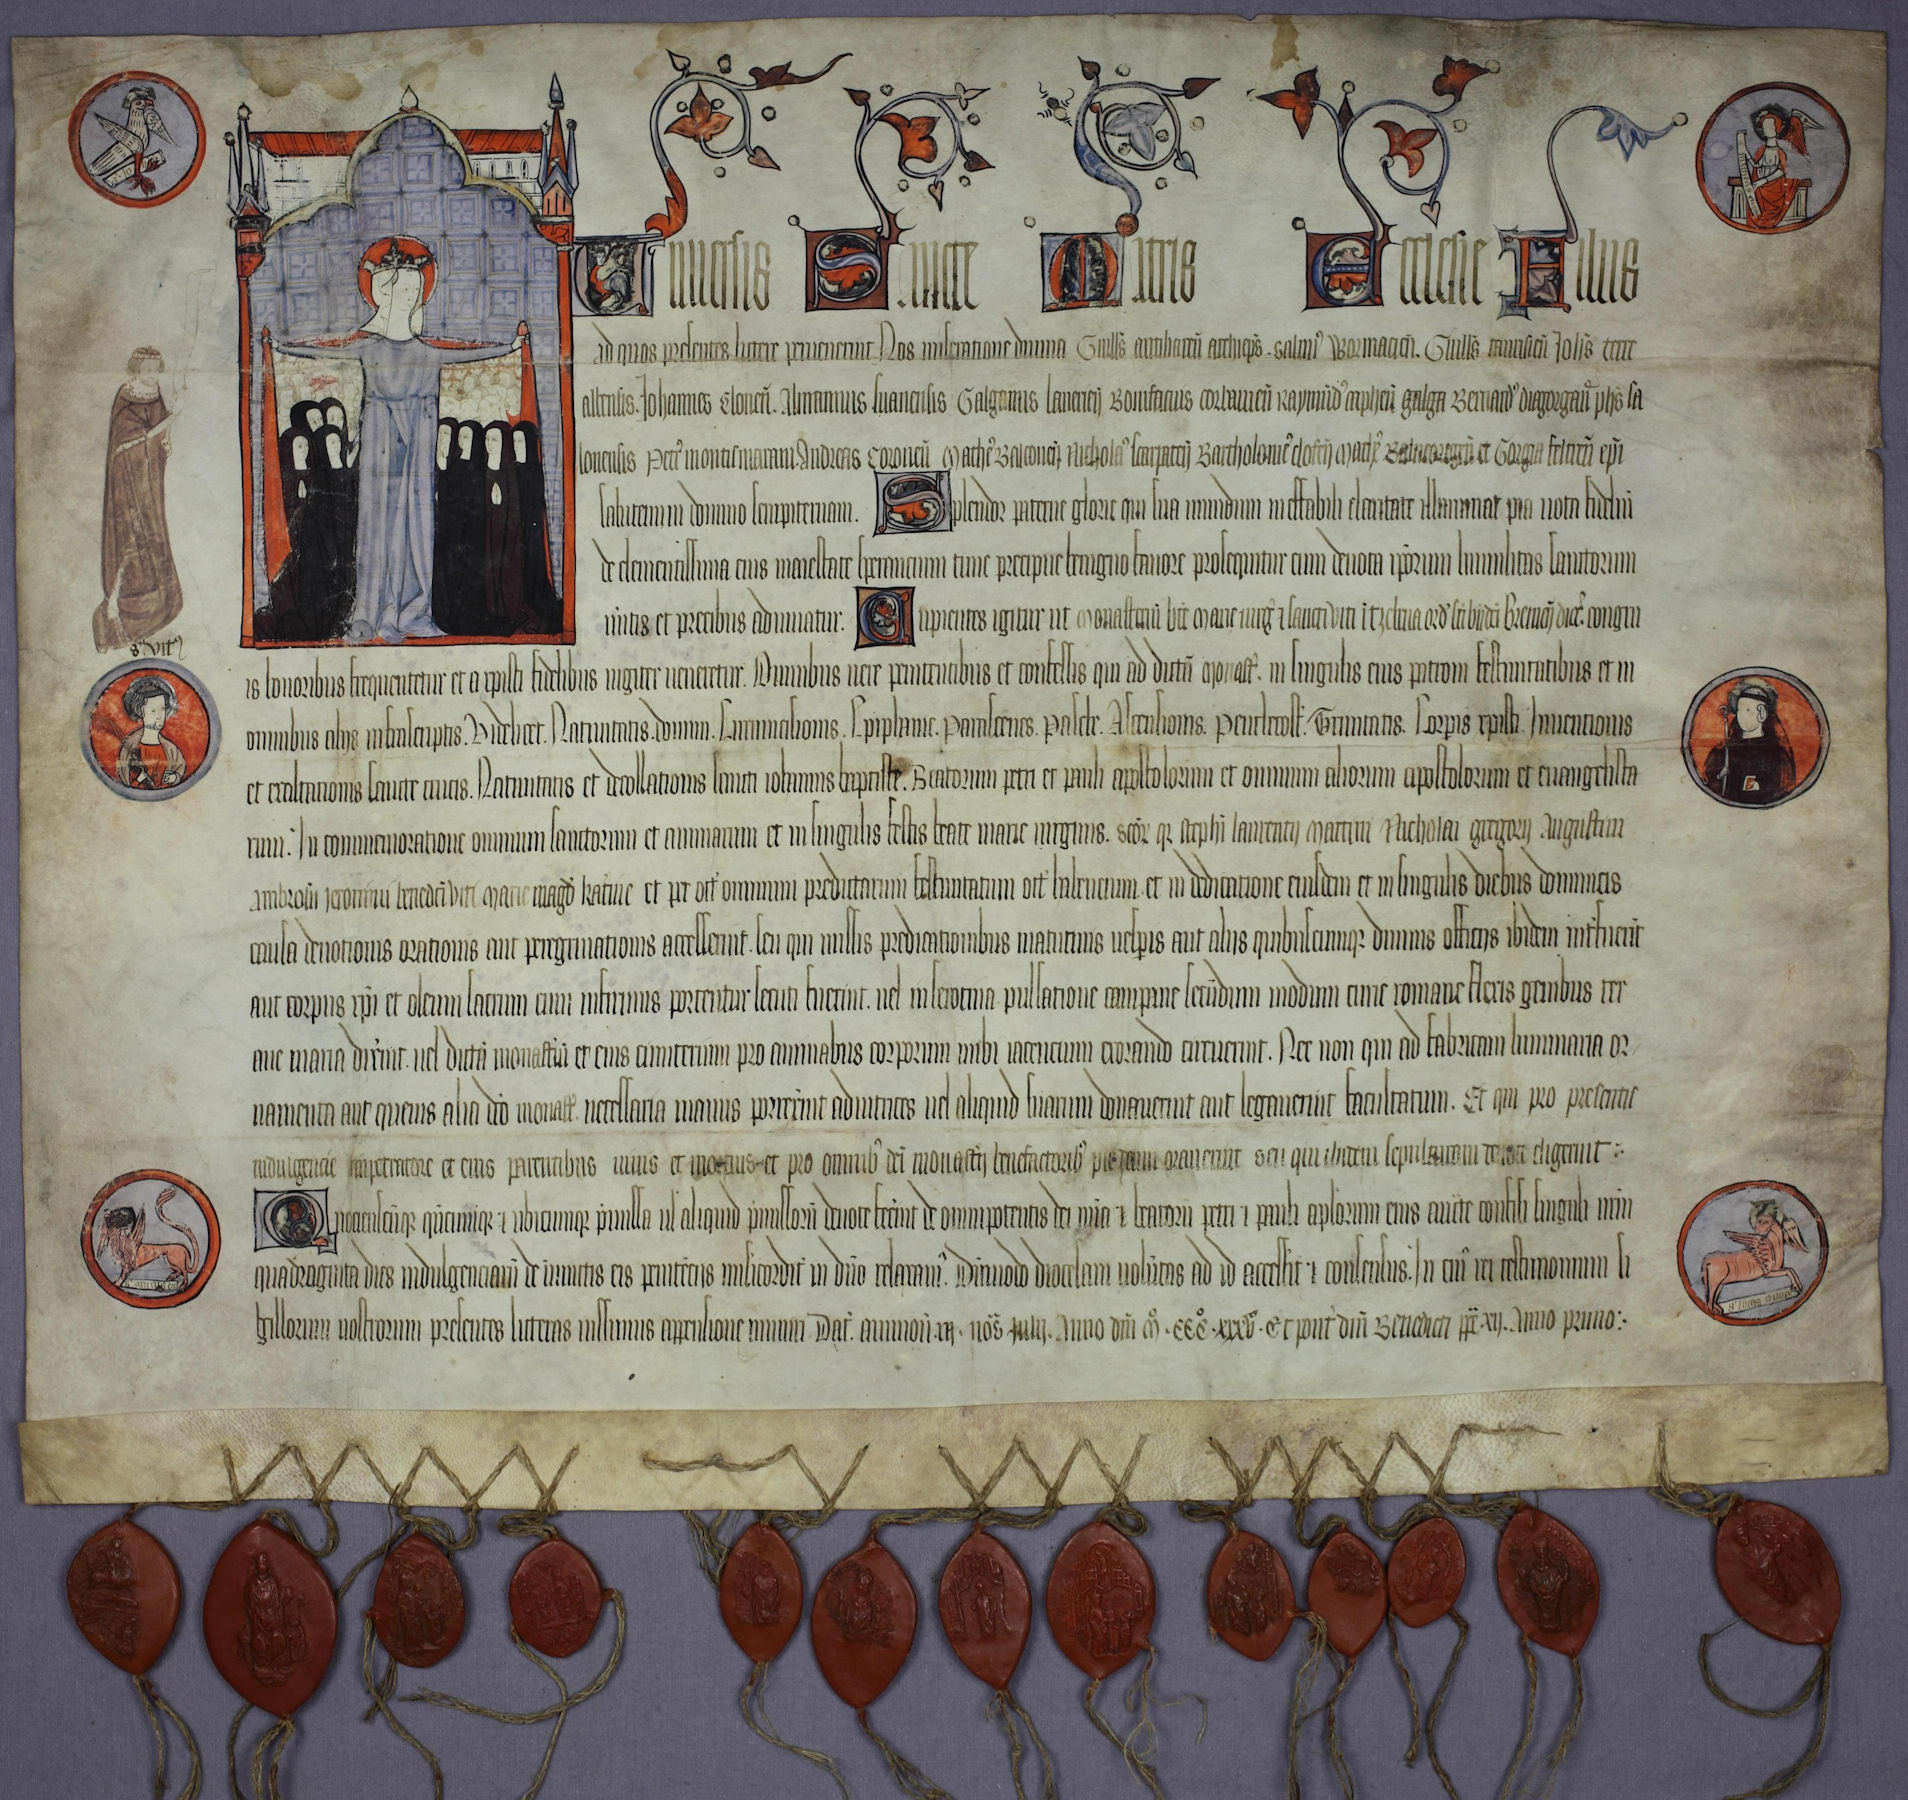 Universis Sancte Matris Ecclesie Filiis
ad quos presentes littere pervenerint Nos miseratione divina Guills antibareñ archieps. salmus Wormacieñ. Guills taurisieñ Johs terre
albensis. Johannes Cloneñ. Alimanus suanensis Galganus Bonifacius corbavieñ Raymundus Bernardus phs sa
lonensis Petrus montis marani. Andreas Coroneñ Matheus Balconeñ Nicholaus scarpateñ Bartholomeus et Gorgia feltreñ epi
salutem in domino sempiternam. Splendor paterne glorie qui sua mundum ineffabili claritate illuminat pia vota fideliū
de clementissima eius maiestate sperancium tunc precipue benigno favore prosequitur cum devota ipsorum humilitas sanctorum
meritis et precibus adiuvatur. Cupientes igitur ut monasteriū bte Marie virgs et sancti viti ord sci bñdci congru
is honoribus frequentetur et a xpisti fidelibus iugiter veneretur. Omnibus vere penitentibus et confessis qui ad dictū monast. in singulis eius patroni festivitatibus et in
omnibus alijs infrascriptis. Videlicet. Nativitatis. domini. Circumcisionis. Epiphanie. Parasceves. Pasche. Ascensionis. Penthecost. Trinitatis. Corpis xpisti. Inventionis
et exaltationis sancte crucis. Nativitatis et decollationis sancti iohannis baptiste. Beatorum petri et pauli apostolorum et omnium aliorum apostolorum et evangelista
rum. In commemoratione omnium sanctorum et animarum et in singulis festis beate marie virginis. scor qr stephi laurentij Martini Nicholai gregorij Augustini
Ambrosii Jeronimi benedcti viti Marie magd katine et per oct omnium predictarum festivitatum oct habencium. et in dedicatione eiusdem et in singulis diebus dominicis
causa devotionis orationis aut peregrinationis accesserint. seu qui missis predicationibus matutinis vespis aut alijs quibuscumqr divinis officijs ibidem int'fuerit
aut corpus xpi et oleum sacrum cum infirmis portentur secuti fuerint. vel in serotina pulsatione campane secūdum modum curie romane flexis genibus ter
ave maria dixerint. vel dictū monastiū et eius cimiterium pro animabus corporum inibi iacencium exorando circuerint. Nec non qui ad fabricam luminaria or
namenta aut quevis alia dco monast. necessaria manus porrexerint adiutrices vel aliquid suarum donaverint aut legaverint facultatum. Et qui pro presentis
indulgencie impetratore et eius parentibus vivis et mortuis et pro omnibus dci monastij benefactoribus pie oraverint seu qui ibidem sepulturam elegerint
Quociescūqr qdocumqr et ubicumqr pmissa vl aliquid pmissorū devote fecint de omnipotentis dei mia et beatorū petri et pauli aplorum eius aucte confisi singuli nrm
quadraginta dies indulgenciarū de iniunctis eis penitenciis misericordit in dño relaxam9. Dūmodo diocesani volūtas ad id accesserit et consensus. In cui9 rei testimonium si
gillorum nostrorum presentes litteras iussimus appensione muniri. Dat. avinionī. Anno dñi M. CCC. xxxv. Et pont dñi Benedicti pp. xij. Anno primo